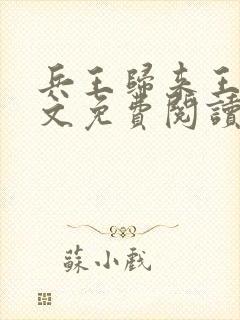 兵王歸來王
文免費閱讀
蘇小戲